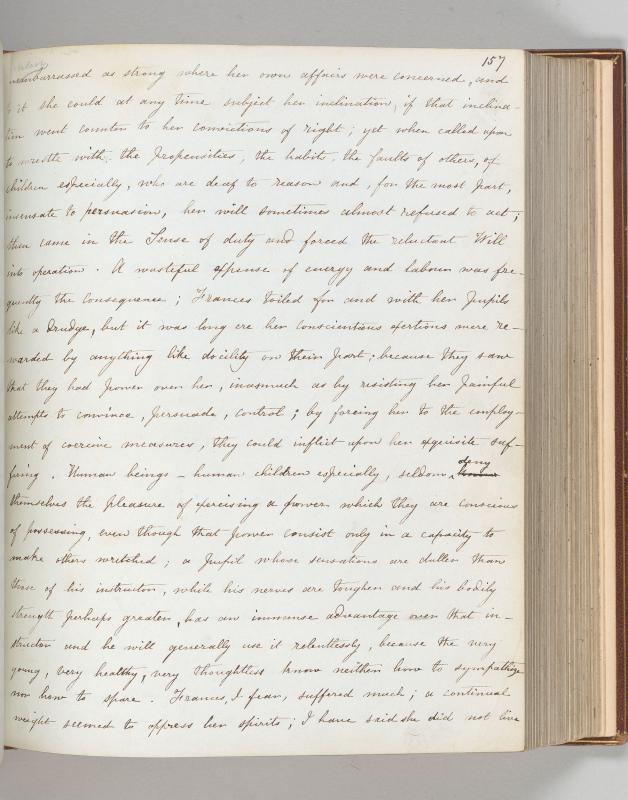 157
unembarrassed as strong where her own affairs were concerned, and
to it she could at any time subject her inclination, if that inclina-
tion went counter to her convictions of right; yet when called upon
to wrestle with the propensities, the habits, the faults of others, of
children especially, who are deaf to reason and, for the most part,
insensate to persuasion, her will sometimes almost refused to act;
then came in the Sense of duty and forced the reluctant Will
into operation. A wasteful expense of energy and labour was fre-
quently the consequence; Frances toiled for and with her Pupils
like a Drudge, but it was long ere her conscientious exertions were re-
warded by anything like docility on their part; because they saw
that they had power over her, inasmuch as by resisting her painful
attempts to convince, persuade, control; by forcing her to the employ-
ment of coercive measures, they could inflict upon her exquisite suf-
fering. Human beings - human children especially, seldom deny
themselves the pleasure of exercising a power which they are conscious
of possessing, even though that power consist only in a capacity to
make others wretched; a Pupil whose sensations are duller than
those of his instructor, while his nerves are tougher and his bodily
strength perhaps greater, has an immense advantage over that in-
structor and he will generally use it relentlessly, because the very
young, very healthy, very thoughtless know neither how to sympathize
nor how to spare. Frances, I fear, suffered much; a continual
weight seemed to oppress her spirits; I have said she did not live